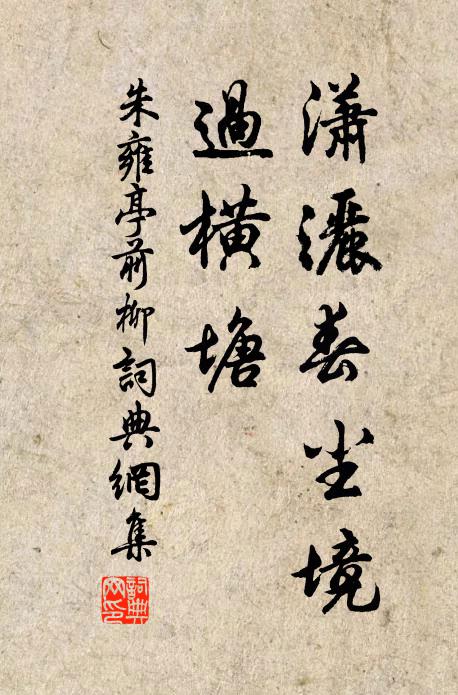 瀟灑春尘境
過橫塘
朱雍亭前柳詞典網集
詞典网印